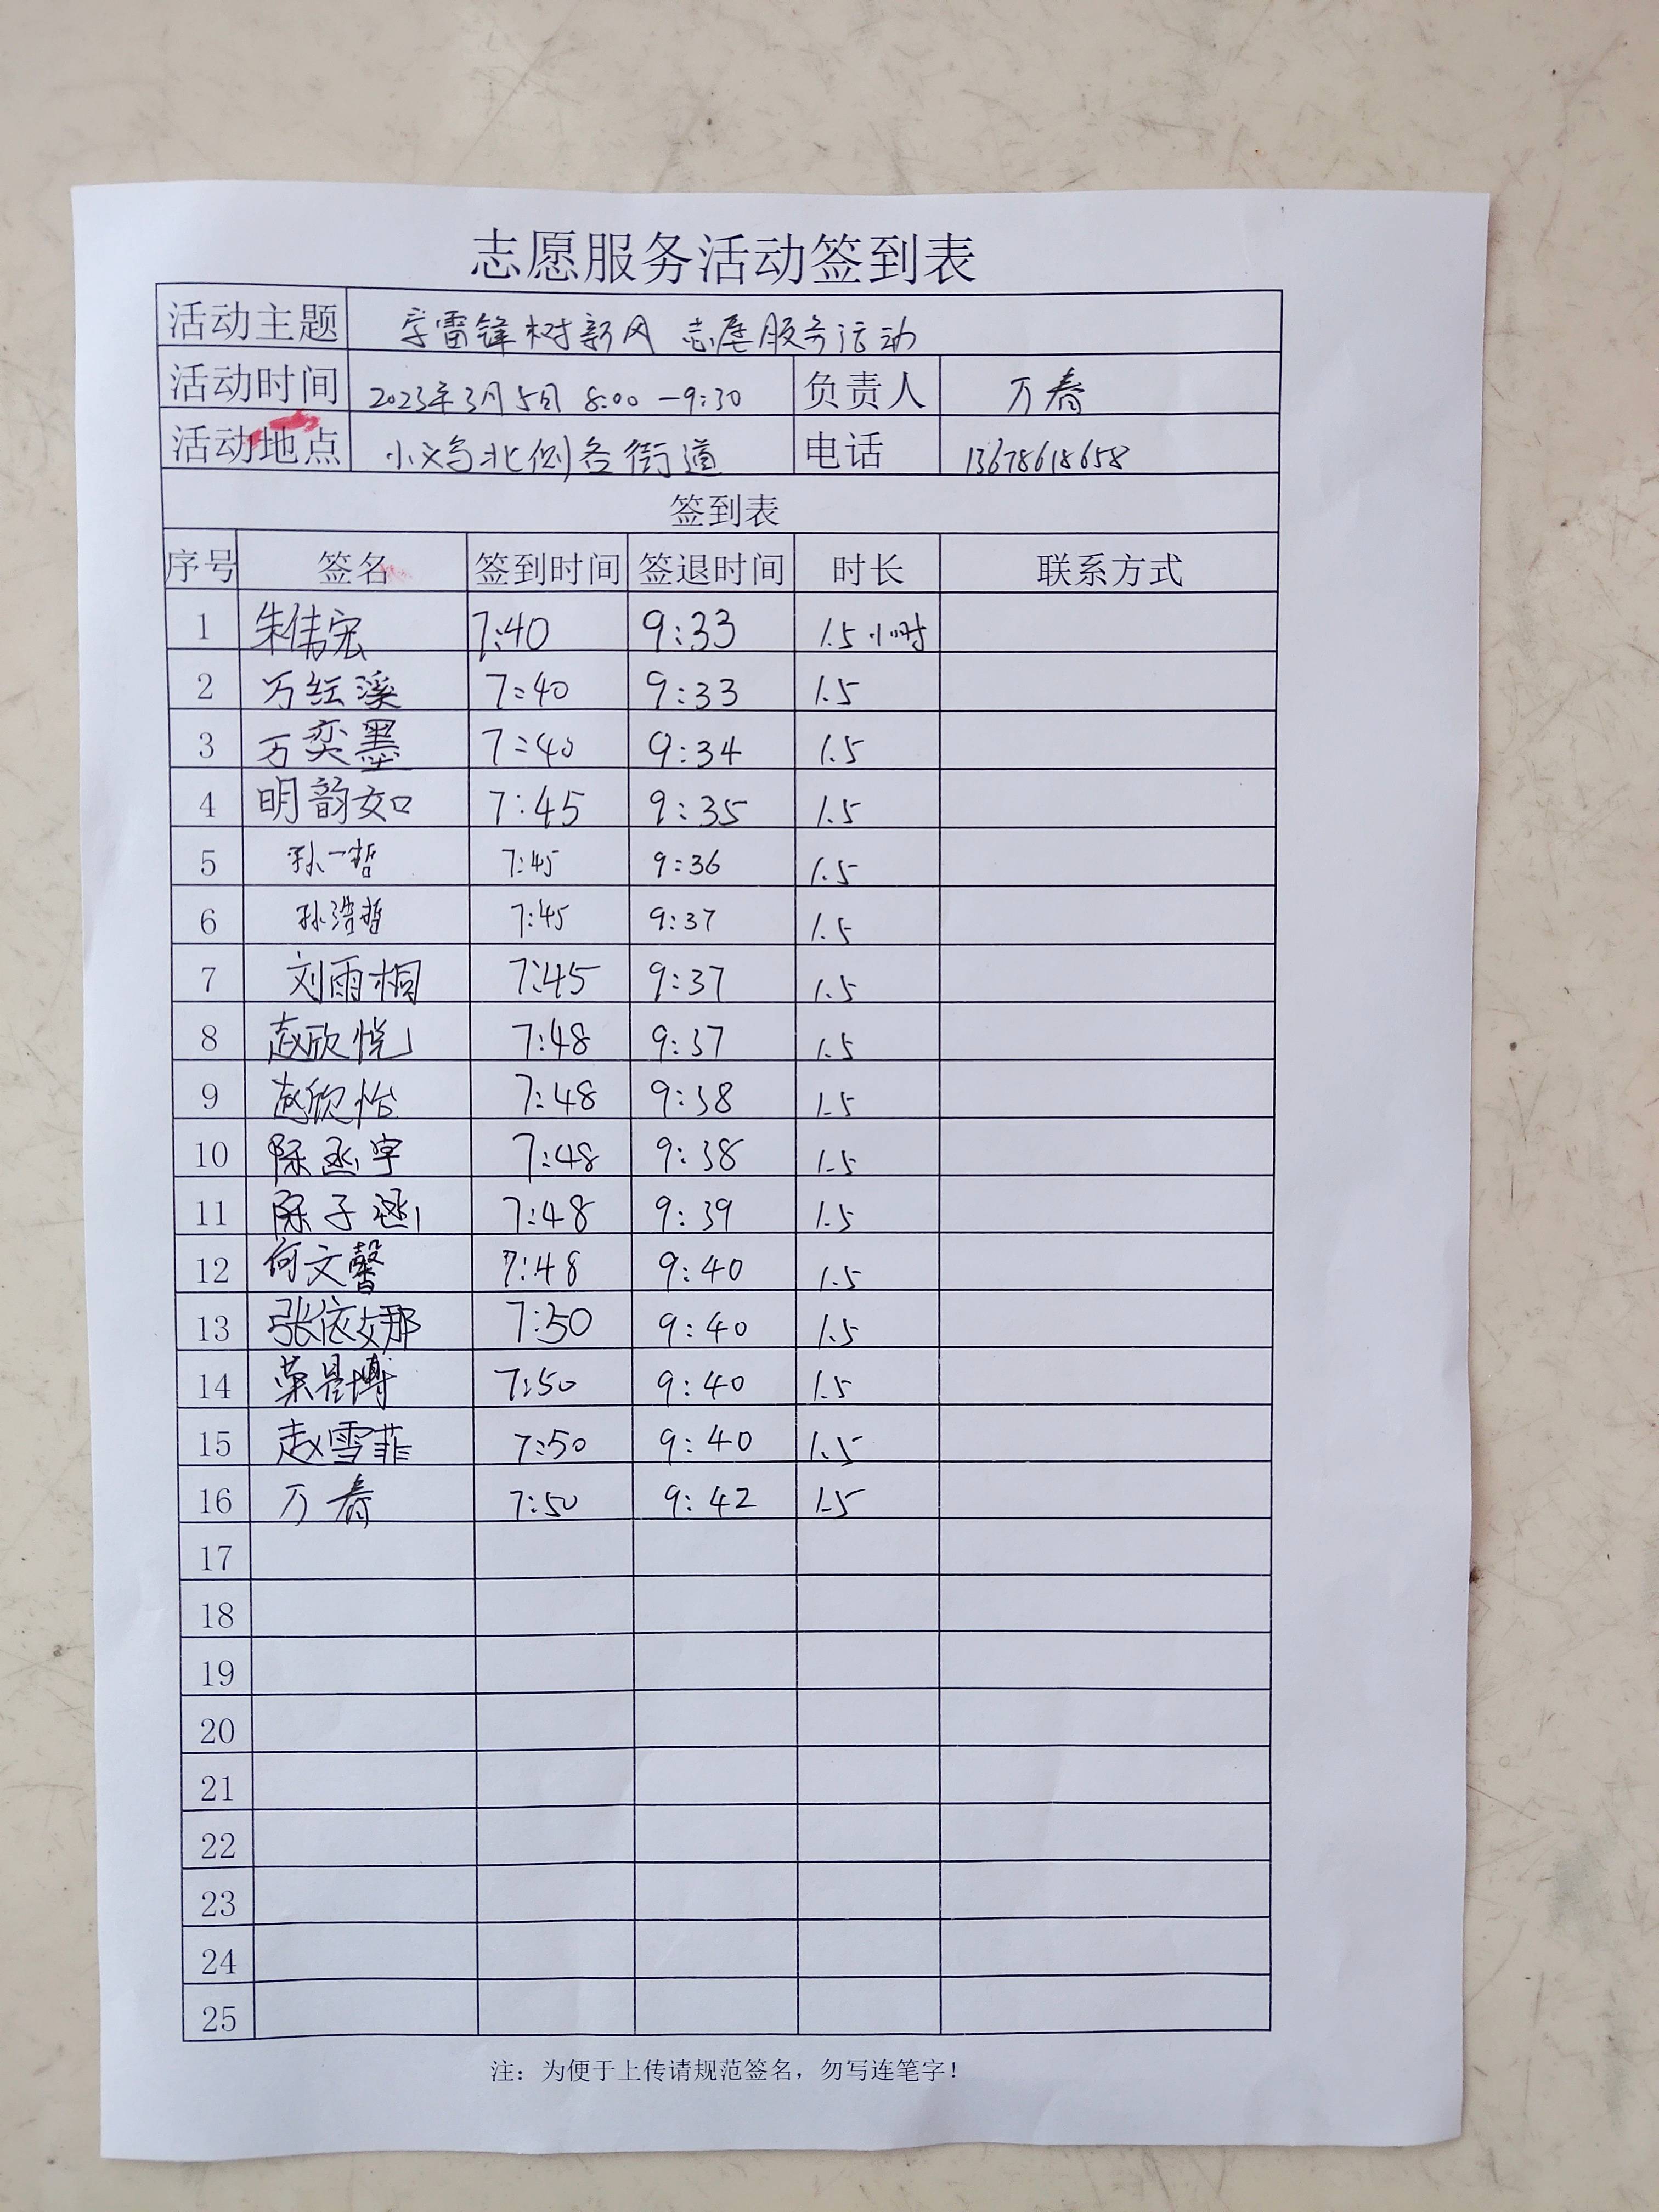 志愿服务活动签到表
活动主题 学雷锋树新风 志愿服务活动
活动时间 2023年3月5日 8:00-9:30 负责人 万春
活动地点 小义乌北侧各街道 电话 13678618658
签到表
序号 签名 签到时间 签退时间 时长 联系方式
1 朱伟宏 7:40 9:33 1.5小时
2 万红溪 7:40 9:33 1.5
3 万奕墨 7:40 9:34 1.5
4 明韵如 7:45 9:35 1.5
5 孙一哲 7:45 9:36 1.5
6 孙浩哲 7:45 9:37 1.5
7 刘雨桐 7:45 9:37 1.5
8 赵欣悦 7:48 9:37 1.5
9 赵欣怡 7:48 9:38 1.5
10 陈丞宇 7:48 9:38 1.5
11 陈子涵 7:48 9:39 1.5
12 何文馨 7:48 9:40 1.5
13 张依娜 7:50 9:40 1.5
14 7:50 9:40 1.5
15 赵雪菲 7:50 9:40 1.5
16 万春 7:50 9:42 1.5
17
18
19
20
21
22
23
24
25
注：为便于上传请规范签名，勿写连笔字！